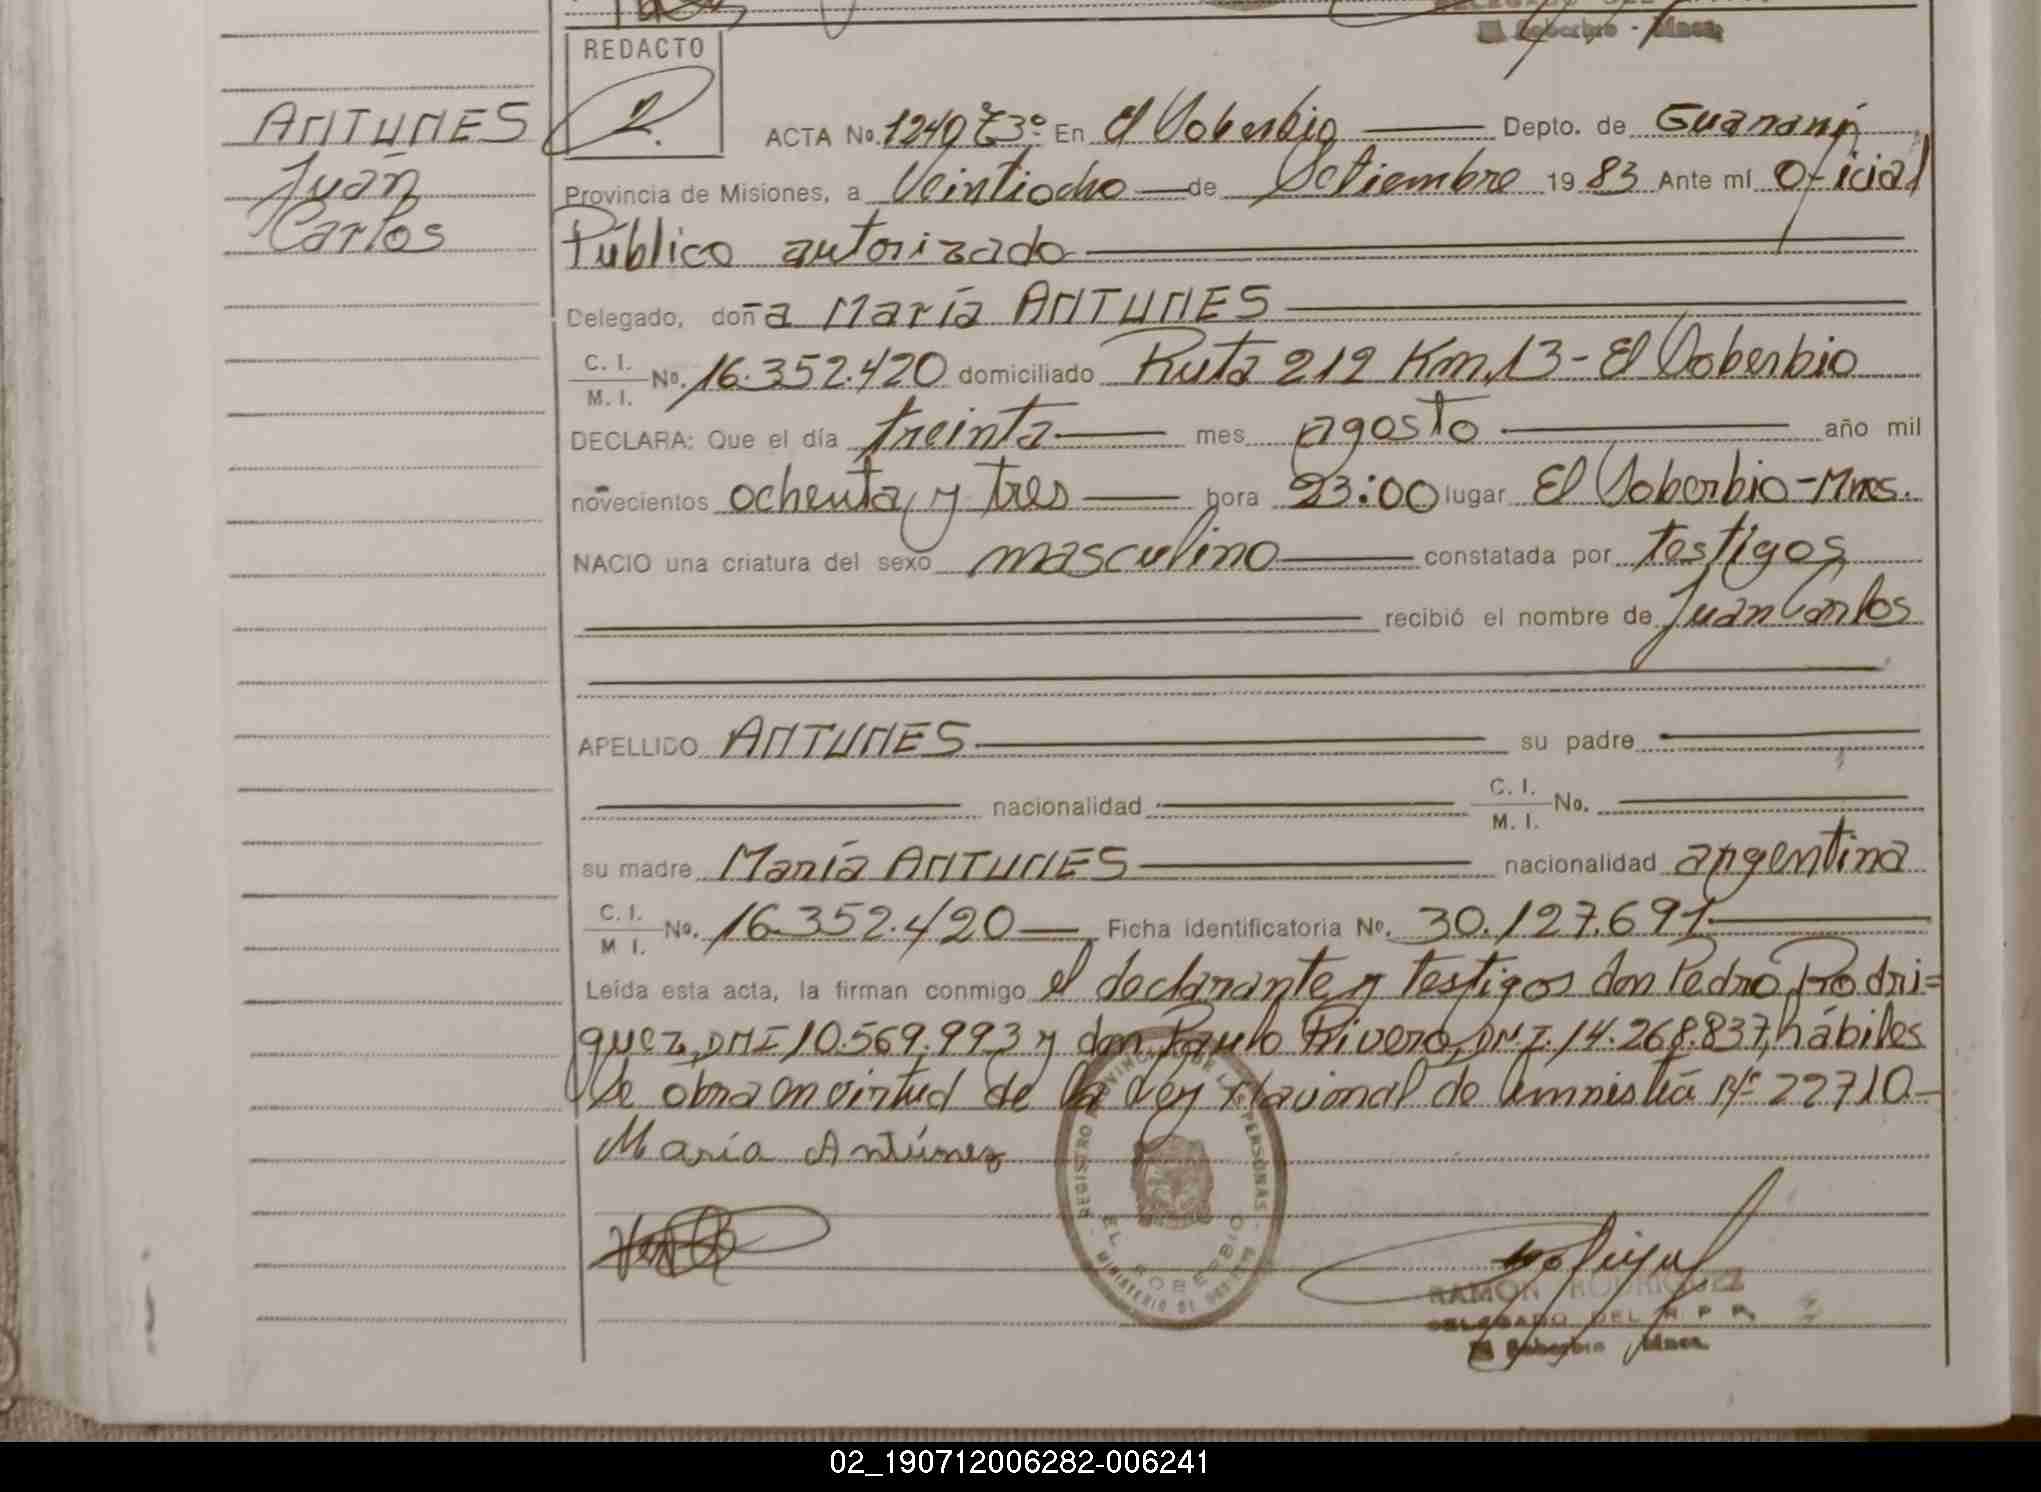 El Soberbio - Mnes.
REDACTO
ANTUNES
Juan
Carlos
2.
ACTA No. 1240 T3º En El Soberbio Depto. de Guaraní
Provincia de Misiones, a Veintiocho de Setiembre 1983 Ante mí Oficial
Público autorizado
Delegado, doña María ANTUNES
C. I. M. I. No. 16.352.420 domiciliado Ruta 212 Km,13-El Soberbio
DECLARA: Que el día treinta mes agosto año mil
novecientos ochenta y tres hora 23:00 lugar El Soberbio-Mnes.
NACIO una criatura del sexo masculino constatada por testigos
recibió el nombre de Juan Carlos
APELLIDO ANTUNES su padre
nacionalidad C. I. M. I. No.
su madre María ANTUNES nacionalidad argentina
C. I. M I. No. 16.352.420 Ficha identificatoria No. 30.127.691
Leída esta acta, la firman conmigo el declarante y testigos don Pedro Rodri=
guez, DNI 10.569.993 y don Paulo Rivero, DN.I. 14.268.837, hábiles
Se obra en virtud de la Ley Nacional de Amnistía Nº 22710-
María Antúnez
REGISTRO PROVINCIAL DE LAS PERSONAS
EL SOBERBIO
MINISTERIO DE
RAMON RODRIGUEZ
DELEGADO DEL R. P. P.
El Soberbio Mnes.
02_190712006282-006241